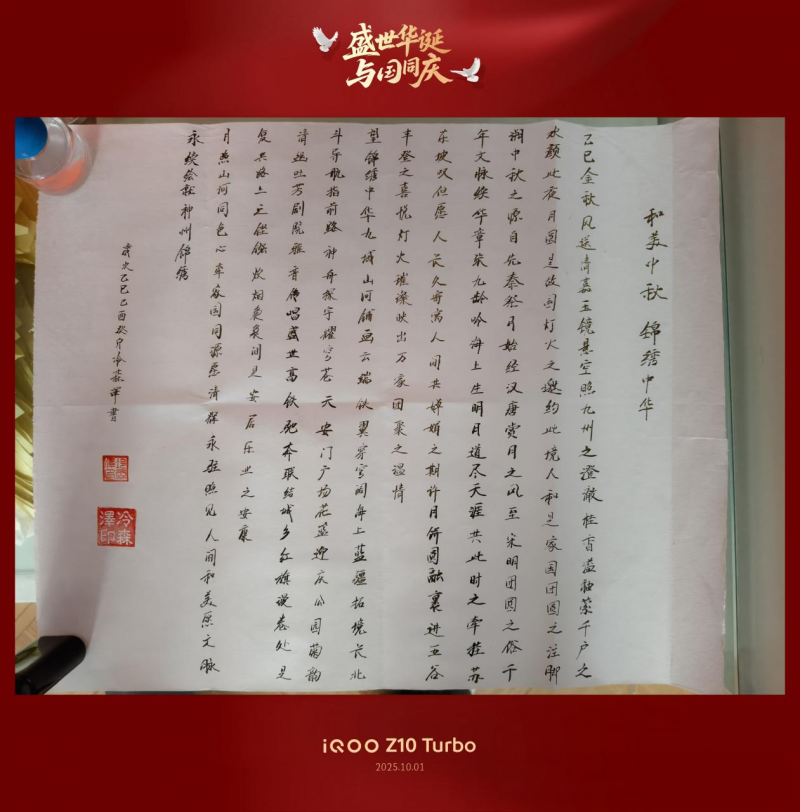 盛世华诞
与国同庆
和美中秋 锦绣中华
乙巳金秋风送清嘉玉镜悬空照九州之澄澈桂香盈袖荣千户之
欢颜此夜月圆是故园灯火之邀约此境人和是家国团圆之注脚
溯中秋之源自先秦祭月始经汉唐赏月之风至宋明团圆之俗千
年文脉续华章张九龄吟海上生明月道尽天涯共此时之牵挂苏
东坡叹但愿人长久寄寓人间共婵娟之期许月饼圆融裹进五谷
丰登之喜悦灯火璀璨映出万家团聚之温情
望锦绣中华九域山河铺画云端铁翼穿穹阔海上蓝疆拓境长北
斗导航指前路神舟探宇耀穹苍天安门广场花篮迎庆 园菊韵
清幽吐芳剧院雅音传唱盛世高铁驰奔联结城乡红旗漫卷处是
复兴路上之铿锵炊烟袅袅间是安居乐业之安康
月照山河同色心牵家国同源愿清辉永驻照见人间和美愿文脉
永续绘就神州锦绣
岁次乙巳乙酉癸卯冷森泽书
冷森
泽印
iQOO Z10 Turbo
2025.10.01